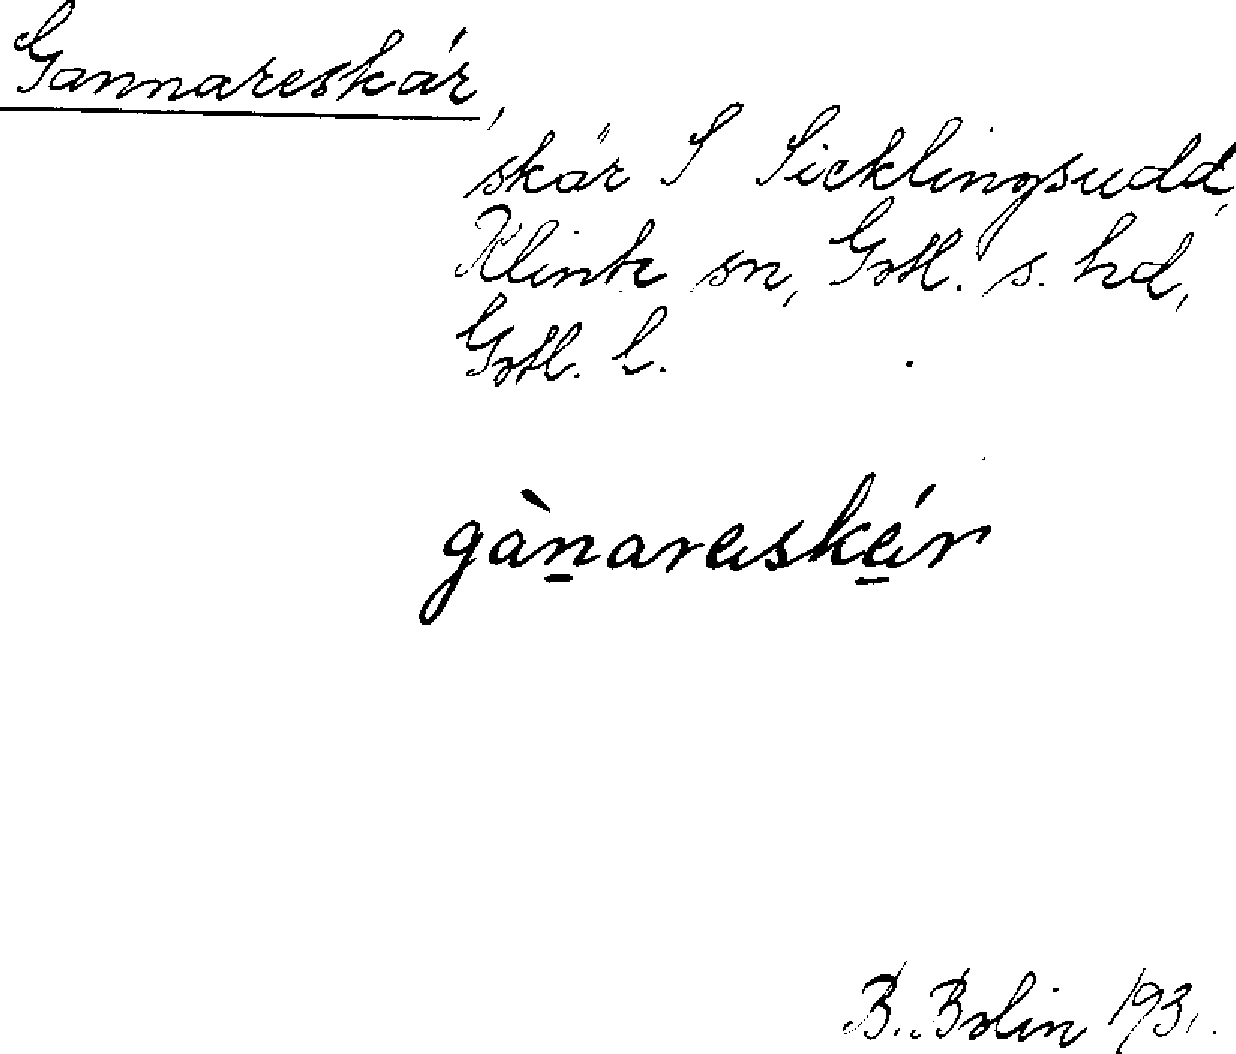 Gannareskär,
skär S Sicklingsudd,
Klinte sn, Gotl. s. hd,
Gotl. l.
gànaraskär
B. Bolin 193.